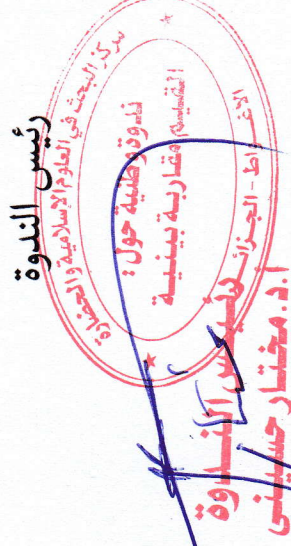 رئيس الندوة
مركز البحث في العلوم الإسلامية والحضارة
ندوة وطنية حول:
التقسيم مقاربة بينية
الاغـواط - الجزائر
رئيس الندوة
أ.د. مختار حسيني